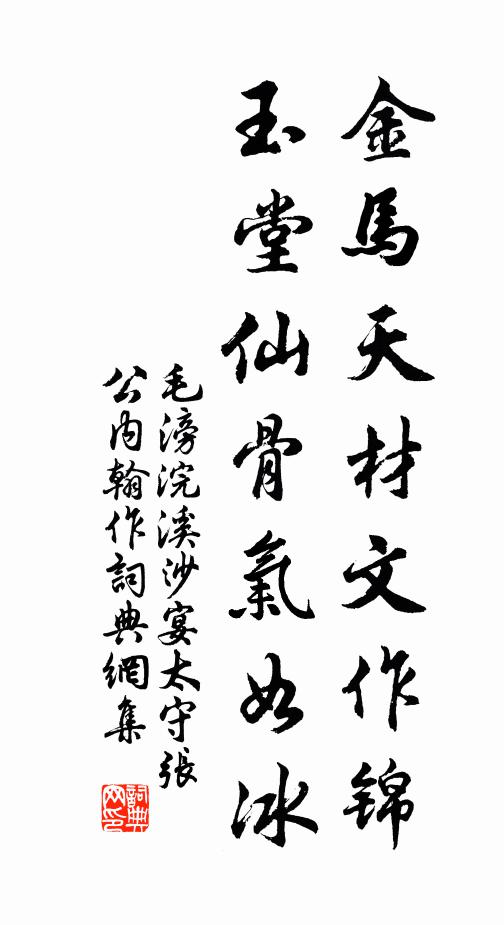 金馬天材文作錦
玉堂仙骨氣如冰
毛滂浣溪沙宴太守張
公内翰作詞典網集
詞典网印